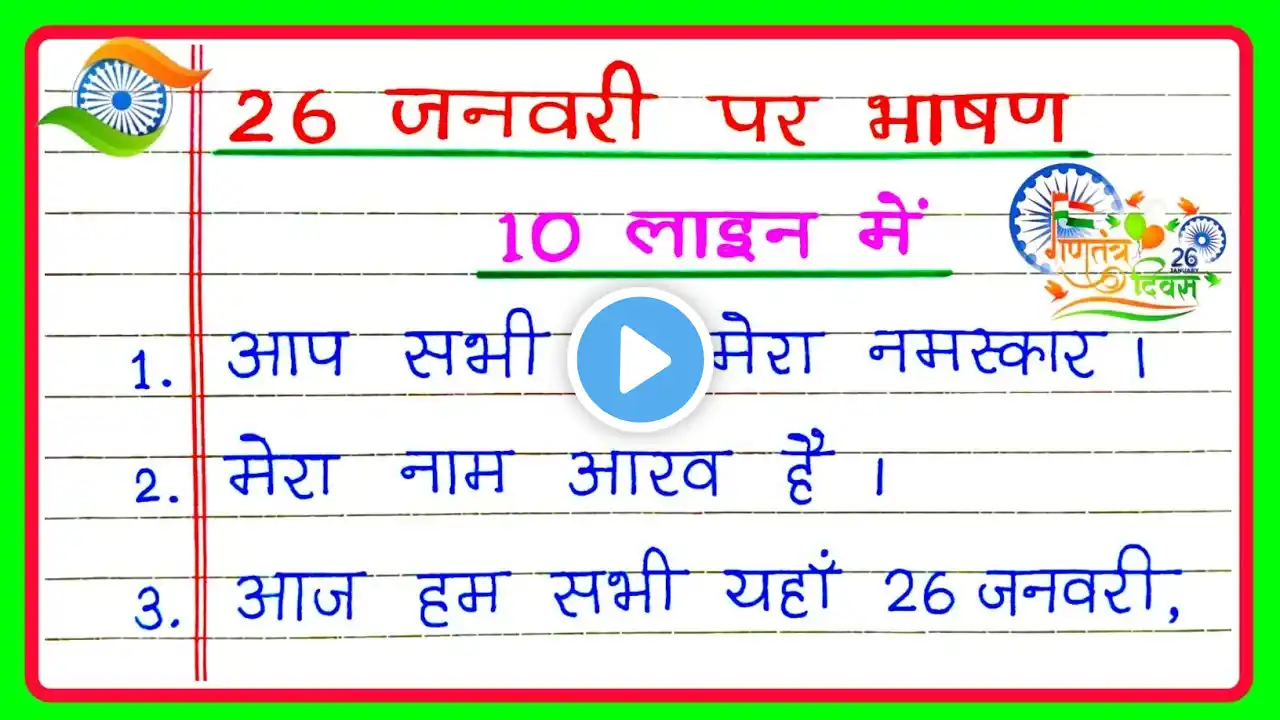 26 जनवरी पर भाषण
10 लाइन में
गणतंत्र
26
JANUARY
दिवस
1. आप सभी मेरा नमस्कार ।
2. मेरा नाम आरव है ।
3. आज हम सभी यहाँ 26 जनवरी,